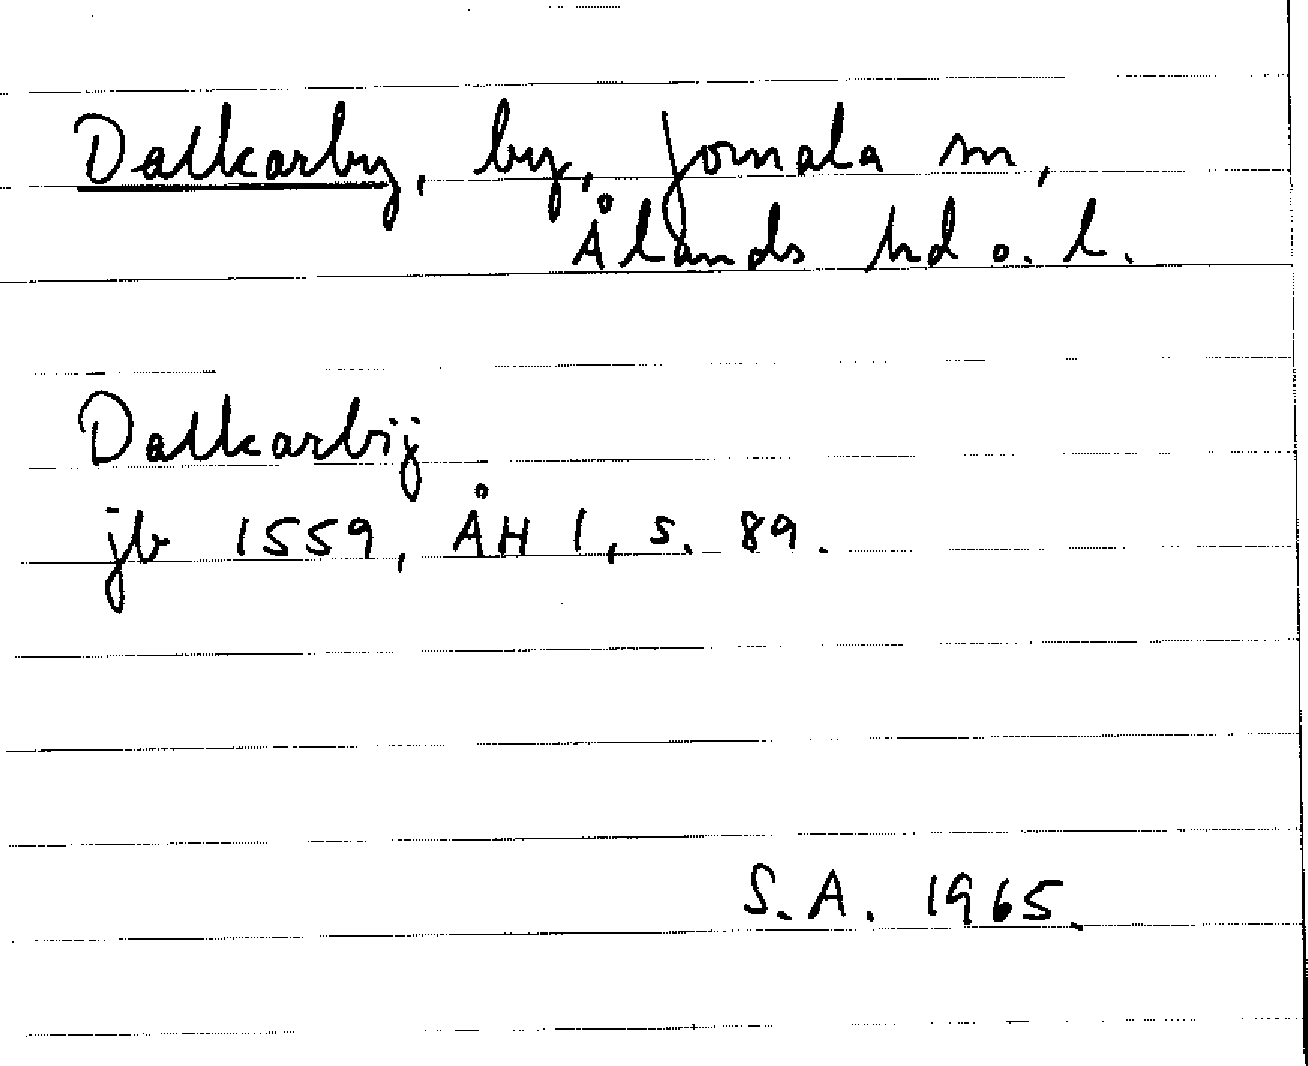 Dalkarby, by, Jomala sn,
Ålands hd o. l.
Dalkarbÿ
jb 1559, ÅH 1, s. 89.
S.A. 1965.